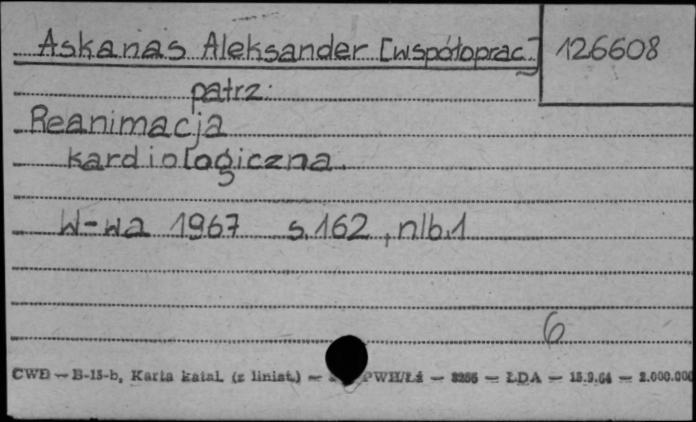 Askanas Aleksander [współoprac.] 126608
patrz:
Reanimacja
kardiologiczna.
W-wa 1967 s. 162, nlb. 1
6
CWD — B-15-b, Karta katal. (z liniat.) — PWH/Łś — 3256 — ŁDA — 15.9.64 — 2.000.000